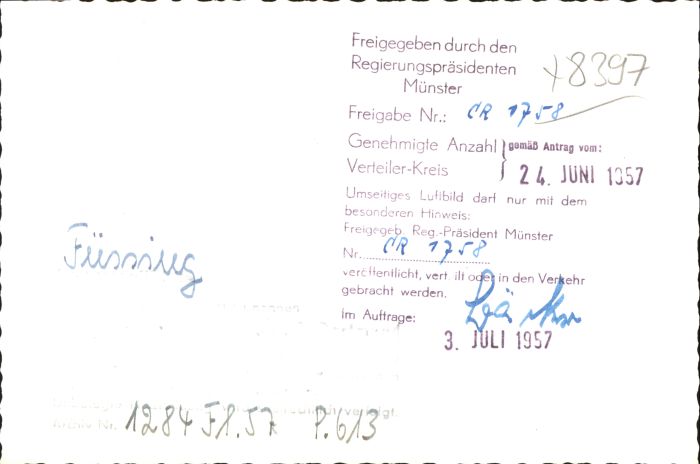 Freigegeben durch den
Regierungspräsidenten
Münster
+8397
Freigabe Nr.: CR 1758
Genehmigte Anzahl
Verteiler-Kreis
gemäß Antrag vom:
24. JUNI 1957
Umseitiges Luftbild darf nur mit dem
besonderen Hinweis:
Freigegeb. Reg.-Präsident Münster
Nr. CR 1758
veröffentlicht, vert ilt oder in den Verkehr
gebracht werden.
im Auftrage:
3. JULI 1957
Füssing
verfolgt.
Archiv Nr. 1284 Fl. 57 P. 613